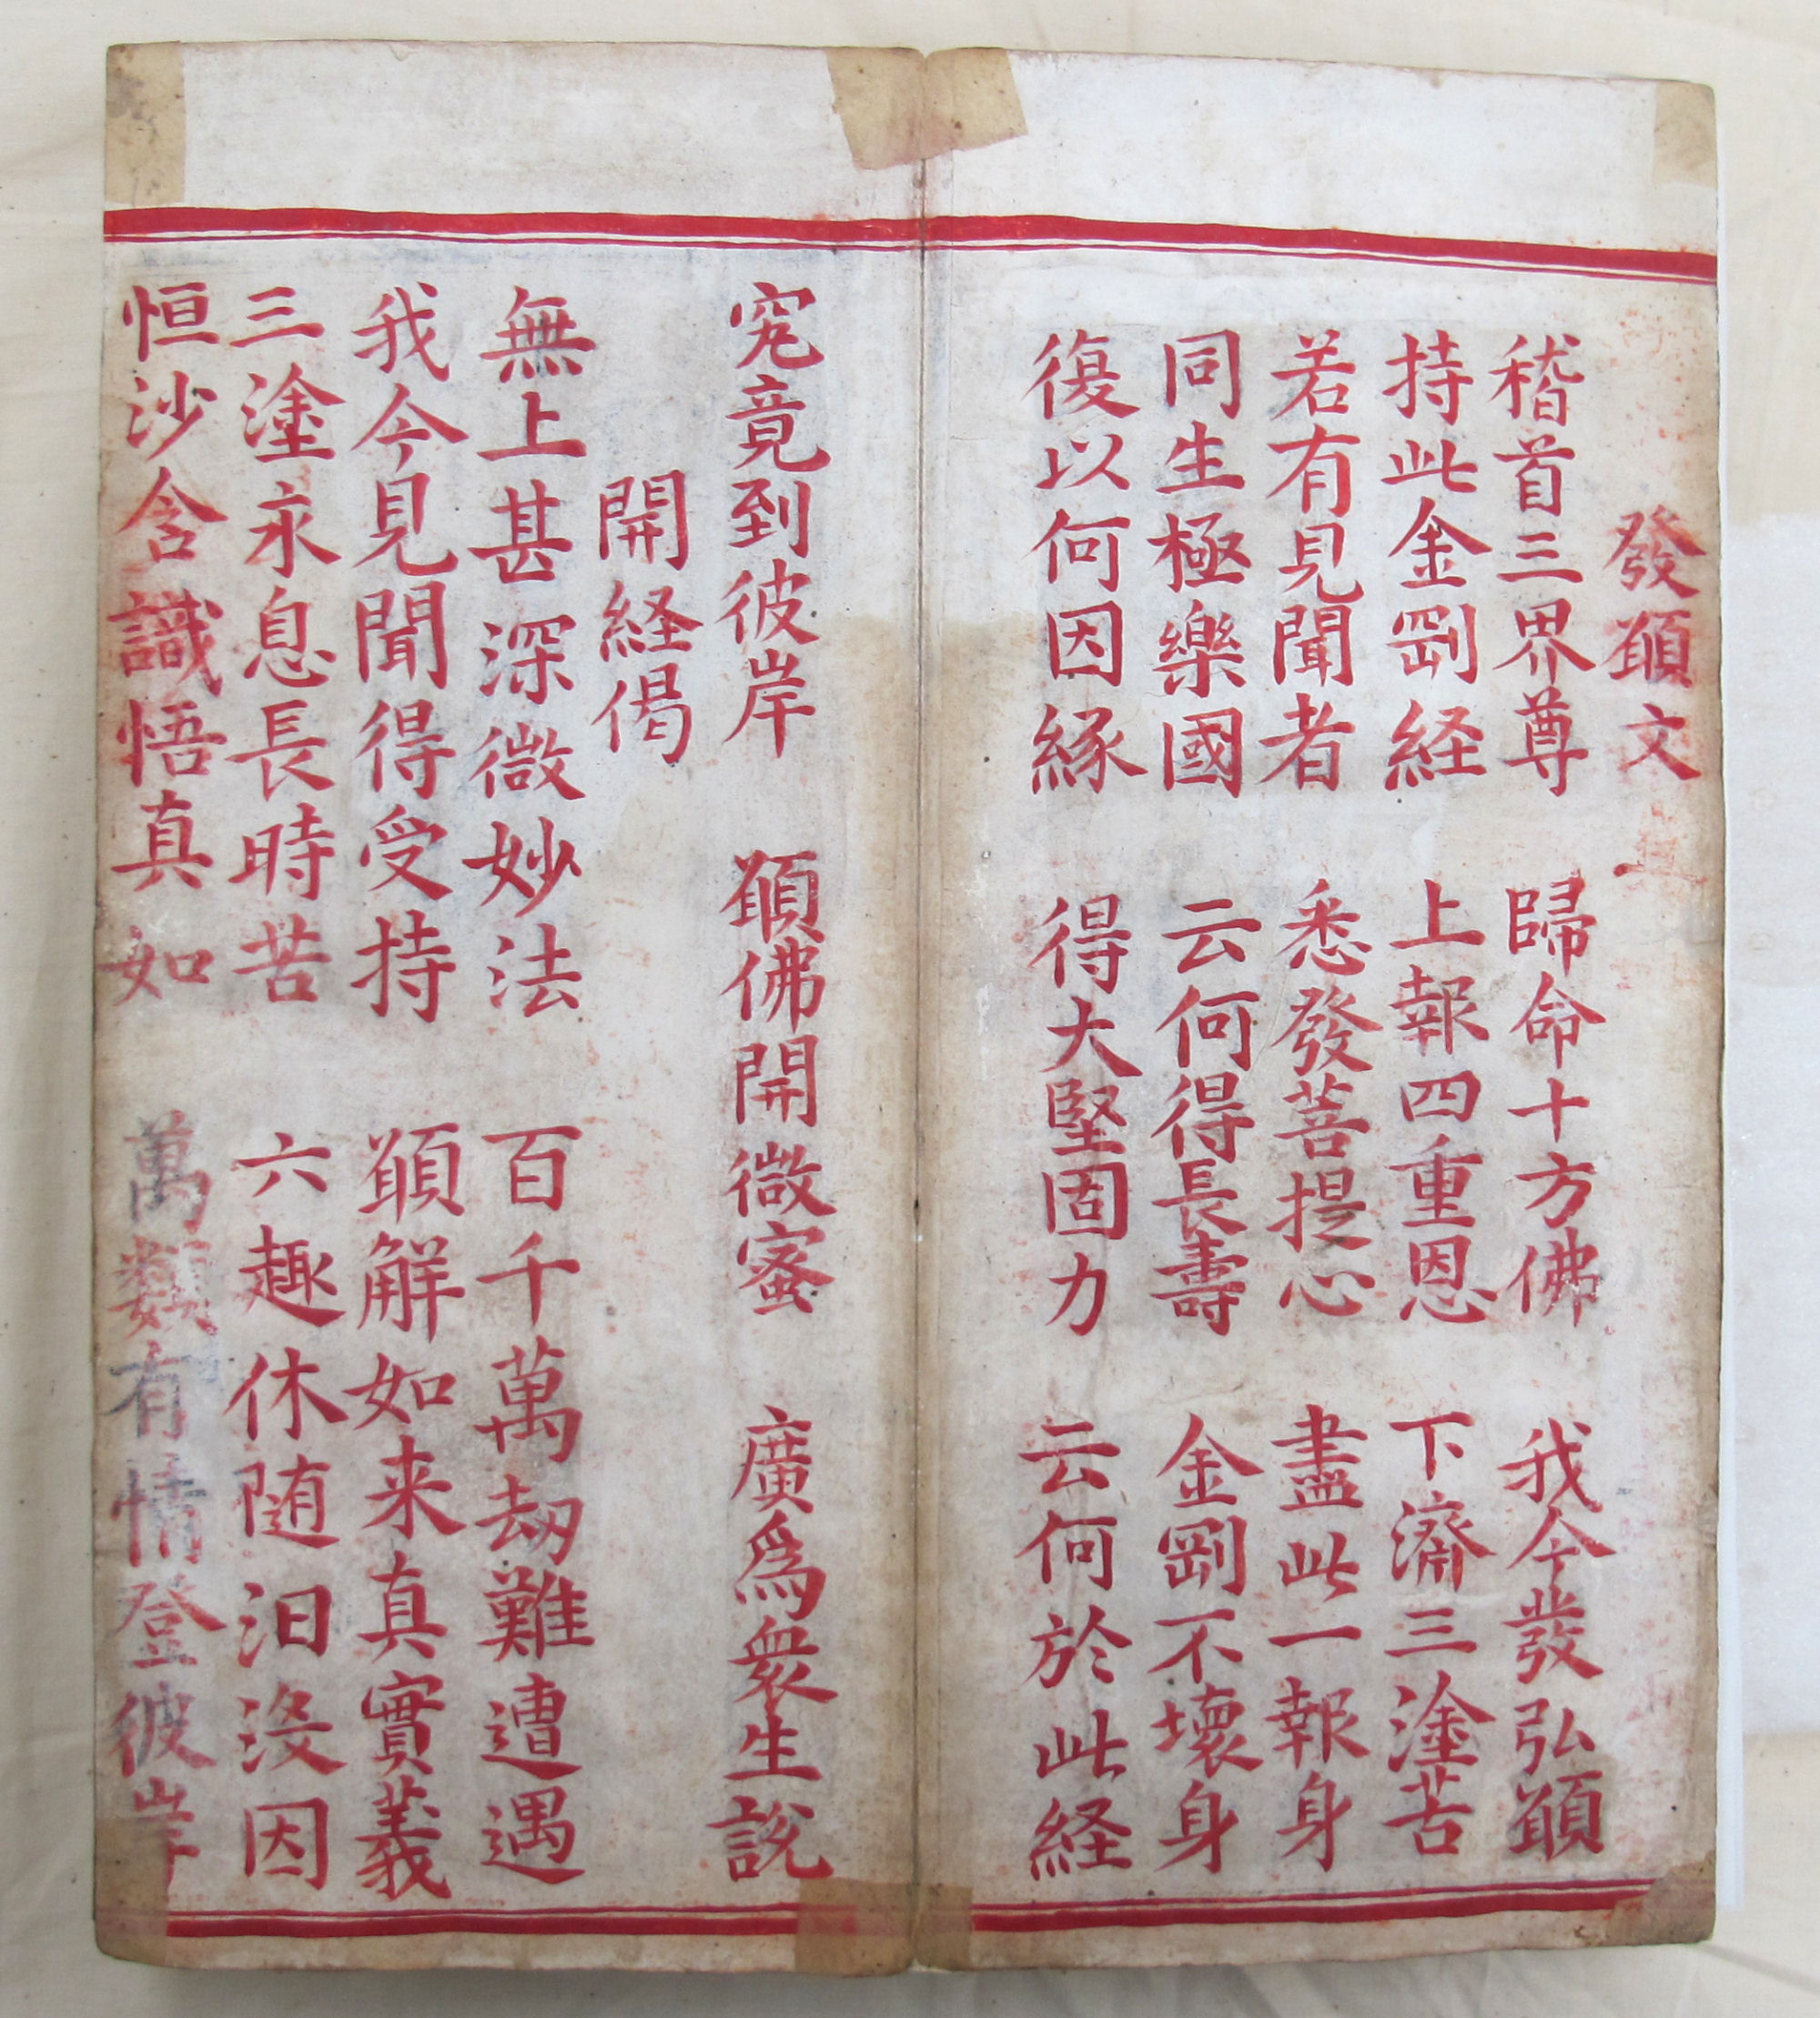 發願文
稽首三界尊 歸命十方佛 我今發弘願
持此金剛経 上報四重恩 下濟三塗苦
若有見聞者 悉發菩提心 盡此一報身
同生極樂國 云何得長壽 金剛不壞身
復以何因緣 得大堅固力 云何於此経
究竟到彼岸 願佛開微蜜 廣爲衆生說
開経偈
無上甚深微妙法 百千萬劫難遭遇
我今見聞得受持 願解如来真實義
三塗永息長時苦 六趣休随汩沒因
恒沙含識悟真如 萬類有情登彼岸